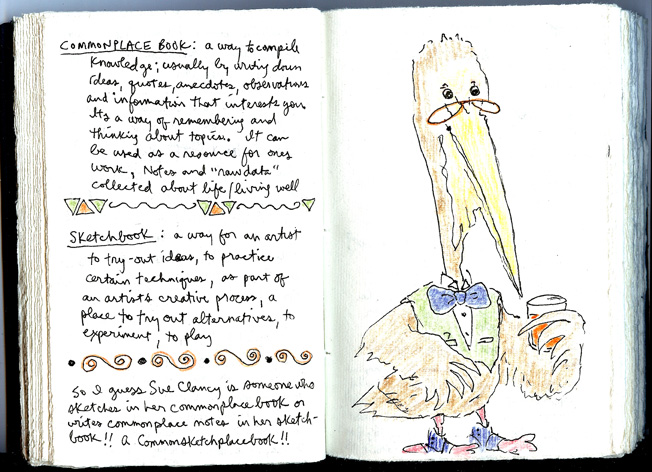 COMMONPLACE BOOK: a way to compile
knowledge; usually by writing down
ideas, quotes, anecdotes, observations
and information that interests you
Its a way of remembering and
thinking about topics. It can
be used as a resource for ones
work, Notes and "raw data"
collected about life/living well
SKETCHBOOK: a way for an artist
to try-out ideas, to practice
certain techniques, as part of
an artists creative process, a
place to try out alternatives, to
experiment, to play
So I guess Sue Clancy is someone who
sketches in her commonplace book or
writes commonplace notes in her sketch-
book!! A Commsketchplacebook!!